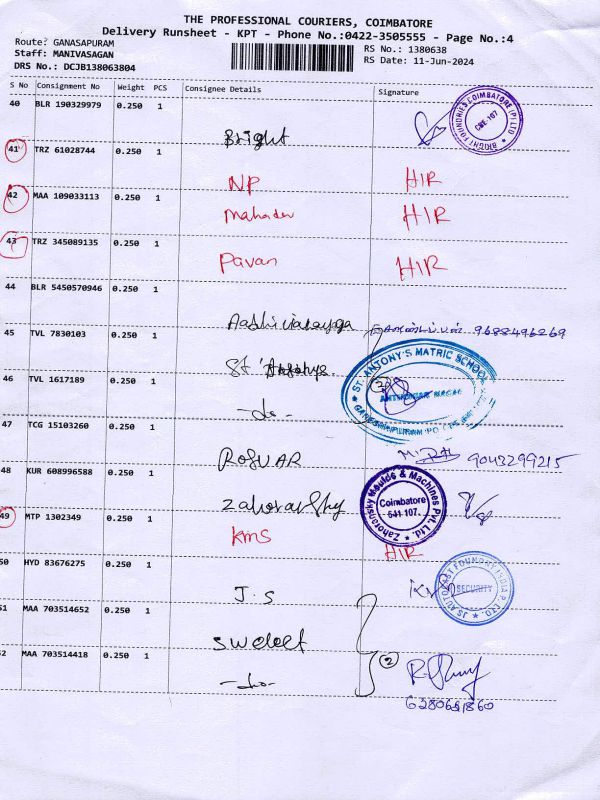 THE PROFESSIONAL COURIERS, COIMBATORE
Delivery Runsheet - KPT - Phone No.:0422-3505555 - Page No.:4
Route? GANASAPURAM
Staff: MANIVASAGAN
DRS No.: DCJB138063804
RS No.: 1380638
RS Date: 11-Jun-2024
S No Consignment No Weight PCS Consignee Details Signature
40 BLR 190329979 0.250 1 Bright
BRIGHT FOUNDRIES COIMBATORE (P) LTD
CBE-107
41 TRZ 61028744 0.250 1 NP HIR
42 MAA 109033113 0.250 1 Mahadev HIR
43 TRZ 345089135 0.250 1 Pavan HIR
44 BLR 5450570946 0.250 1 Aathi Vinayaga 9688496269
45 TVL 7830103 0.250 1 St.
46 TVL 1617189 0.250 1 -do-
ST. ANTONY'S MATRIC SCHOOL
2
47 TCG 15103260 0.250 1 ROSVAR 9043299215
48 KUR 608996588 0.250 1
Zahoransky Moulds & Machines Pvt. Ltd.
Coimbatore
641 107.
49 MTP 1302349 0.250 1 KMS HIR
50 HYD 83676275 0.250 1 J.S
SECURITY
51 MAA 703514652 0.250 1
52 MAA 703514418 0.250 1 -do- 2